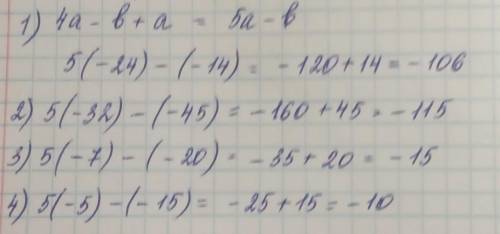 1) 4а - в + а = 5а - в
5(-24) - (-14) = -120 + 14 = -106
2) 5(-32) - (-45) = -160 + 45 = -115
3) 5(-7) - (-20) = -35 + 20 = -15
4) 5(-5) - (-15) = -25 + 15 = -10